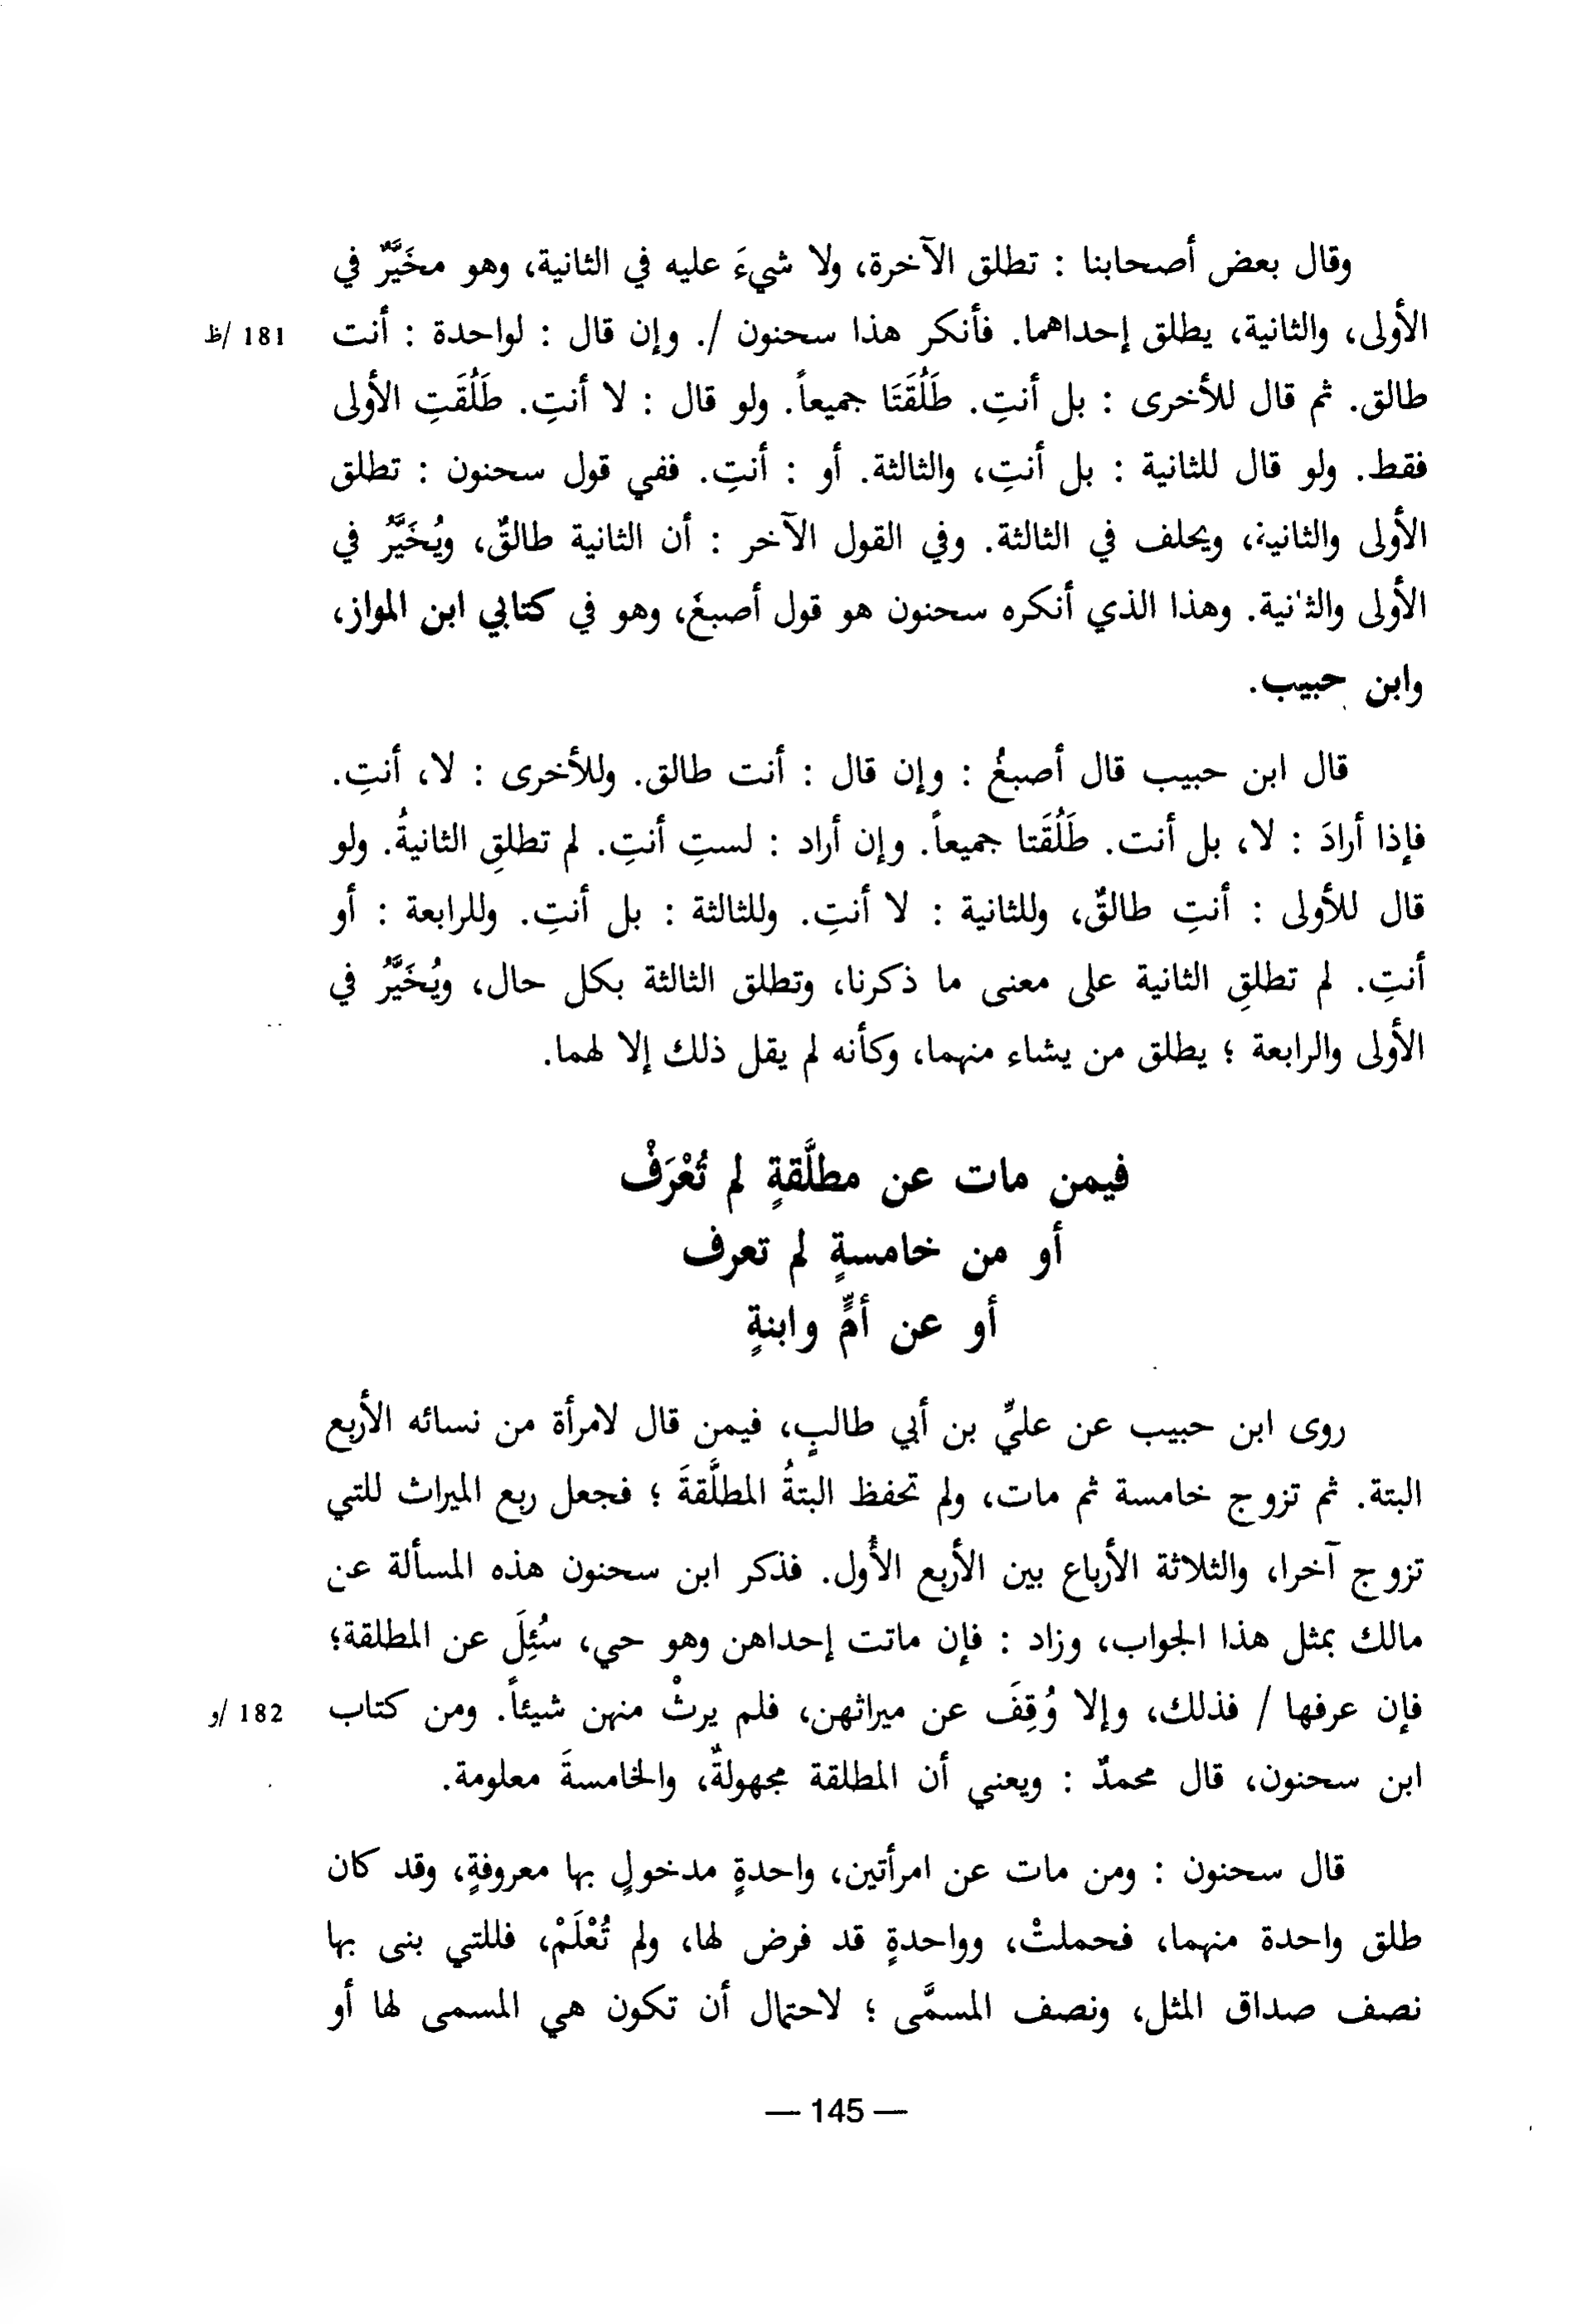 وقال بعض أصحابنا : تطلق الآخرة، ولا شيءَ عليه في الثانية، وهو مخَيَّرٌ في
الأولى، والثانية، يطلق إحداهما. فأنكر هذا سحنون /. وإن قال : لواحدة : أنت
181 /ظ
طالق. ثم قال للأخرى : بل أنتِ. طَلُقَتَا جميعاً. ولو قال : لا أنتِ. طَلُقَتِ الأولى
فقط. ولو قال للثانية : بل أنتِ، والثالثة. أو : أنتِ. ففي قول سحنون : تطلق
الأولى والثانية، ويحلف في الثالثة. وفي القول الآخر : أن الثانية طالقٌ، ويُخَيَّرُ في
الأولى والثانية. وهذا الذي أنكره سحنون هو قول أصبغَ، وهو في كتابي ابن المواز،
وابن حبيب.
قال ابن حبيب قال أصبغُ : وإن قال : أنت طالق. وللأخرى : لا، أنتِ.
فإذا أرادَ : لا، بل أنت. طَلُقَتا جميعاً. وإن أراد : لستِ أنتِ. لم تطلقِ الثانيةُ. ولو
قال للأولى : أنتِ طالقٌ، وللثانية : لا أنتِ. وللثالثة : بل أنتِ. وللرابعة : أو
أنتِ. لم تطلقِ الثانية على معنى ما ذكرنا، وتطلق الثالثة بكل حال، ويُخَيَّرُ في
الأولى والرابعة ؛ يطلق من يشاء منهما، وكأنه لم يقل ذلك إلا لهما.
فيمن مات عن مطلَّقةٍ لم تُعْرَفْ
أو من خامسةٍ لم تعرف
أو عن أمٍّ وابنةٍ
روى ابن حبيب عن عليِّ بن أبي طالبٍ، فيمن قال لامرأة من نسائه الأربع
البتة. ثم تزوج خامسة ثم مات، ولم تحفظ البتةُ المطلَّقةَ ؛ فجعل ربع الميراث للتي
تزوج آخرا، والثلاثة الأرباع بين الأربع الأُول. فذكر ابن سحنون هذه المسألة عن
مالك بمثل هذا الجواب، وزاد : فإن ماتت إحداهن وهو حي، سُئِلَ عن المطلقة؛
فإن عرفها / فذلك، وإلا وُقِفَ عن ميراثهن، فلم يرثْ منهن شيئاً. ومن كتاب
182 /و
ابن سحنون، قال محمدٌ : ويعني أن المطلقة مجهولةٌ، والخامسةَ معلومة.
قال سحنون : ومن مات عن امرأتين، واحدةٍ مدخولٍ بها معروفةٍ، وقد كان
طلق واحدة منهما، فحملتْ، وواحدةٍ قد فرض لها، ولم تُعْلَمْ، فللتي بنى بها
نصف صداق المثل، ونصف المسمَّى ؛ لاحتمال أن تكون هي المسمى لها أو
— 145 —